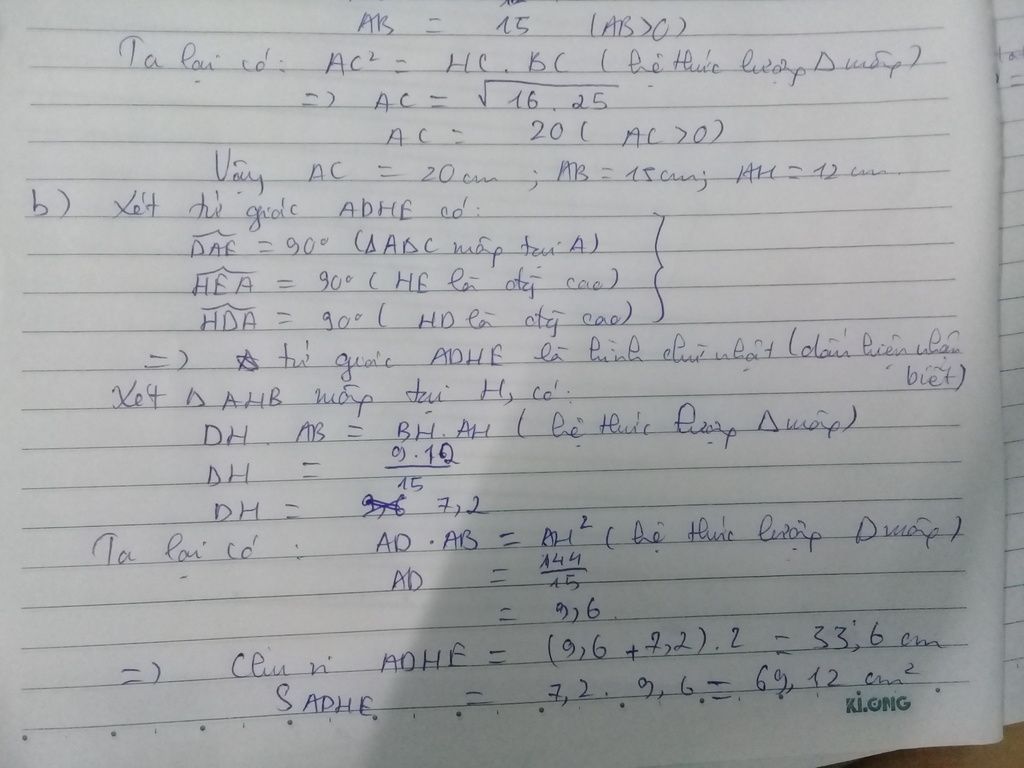 AB = 15 (AB>0)
Ta lại có: AC² = HC . BC ( hệ thức lượng Δ vuông)
=> AC = √16 . 25
AC = 20 ( AC >0)
Vậy AC = 20 cm ; AB = 15 cm; AH = 12 cm
b) Xét tứ giác ADHE có:
DAE = 90° (ΔABC vuông tại A)
HEA = 90° ( HE là đường cao)
HDA = 90° ( HD là đường cao)
=> tứ giác ADHE là hình chữ nhật (dấu hiệu nhận
biết)
Xét Δ AHB vuông tại H, có:
DH . AB = BH . AH ( hệ thức lượng Δ vuông)
DH = 9.12
15
DH = 7,2
Ta lại có : AD . AB = AH² ( hệ thức lượng Δ vuông)
AD = 144
15
= 9,6
=> Chu vi ADHE = (9,6 + 7,2) . 2 = 33,6 cm
S ADHE = 7,2 . 9,6 = 69,12 cm²
KLONG